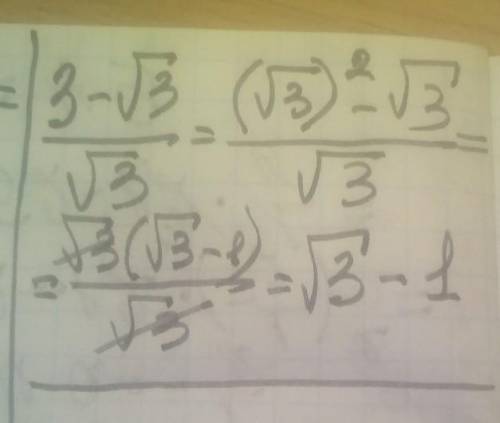 = (3-√3)/√3 = ((√3)²-√3)/√3 =
= √3(√3-1)/√3 = √3-1